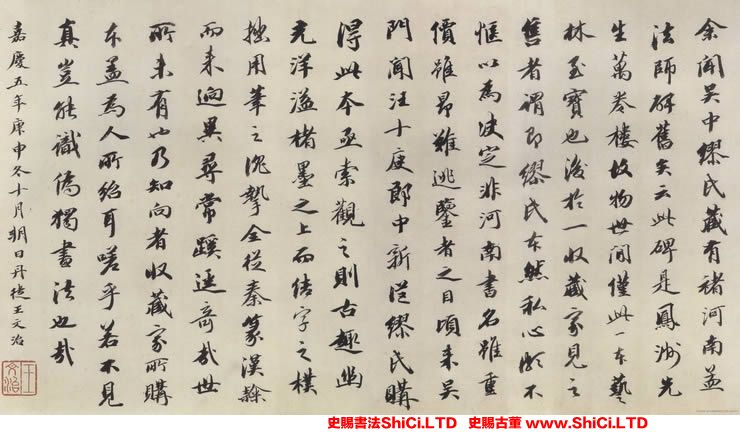 余闻吴中繆氏藏有褚河南孟
法師碑舊矣云此碑是鳳洲先
生萬卷樓故物世間僅此一本藝
林至寶也後於一收藏家見之
售者謂即繆氏本然私心頗不
愜以為決定非河南書名雖重
價雖昂難逃鑒者之目頃来吴
門聞汪十庭郎中新從繆氏購
得此本亟索觀之則古趣幽
光洋溢楮墨之上而結字之樸
拙用筆之沈摯全從秦篆漢隸
而来迥異尋常蹊逕奇哉世
所未有也乃知向者收藏家所購
本盖為人所紿耳嗟乎若不見
真豈能識偽獨書法也哉
嘉慶五年庚申冬十月朔日丹徒王文治
王文治
史賜書法ShiCi.LTD 史賜古董 www.ShiCi.LTD